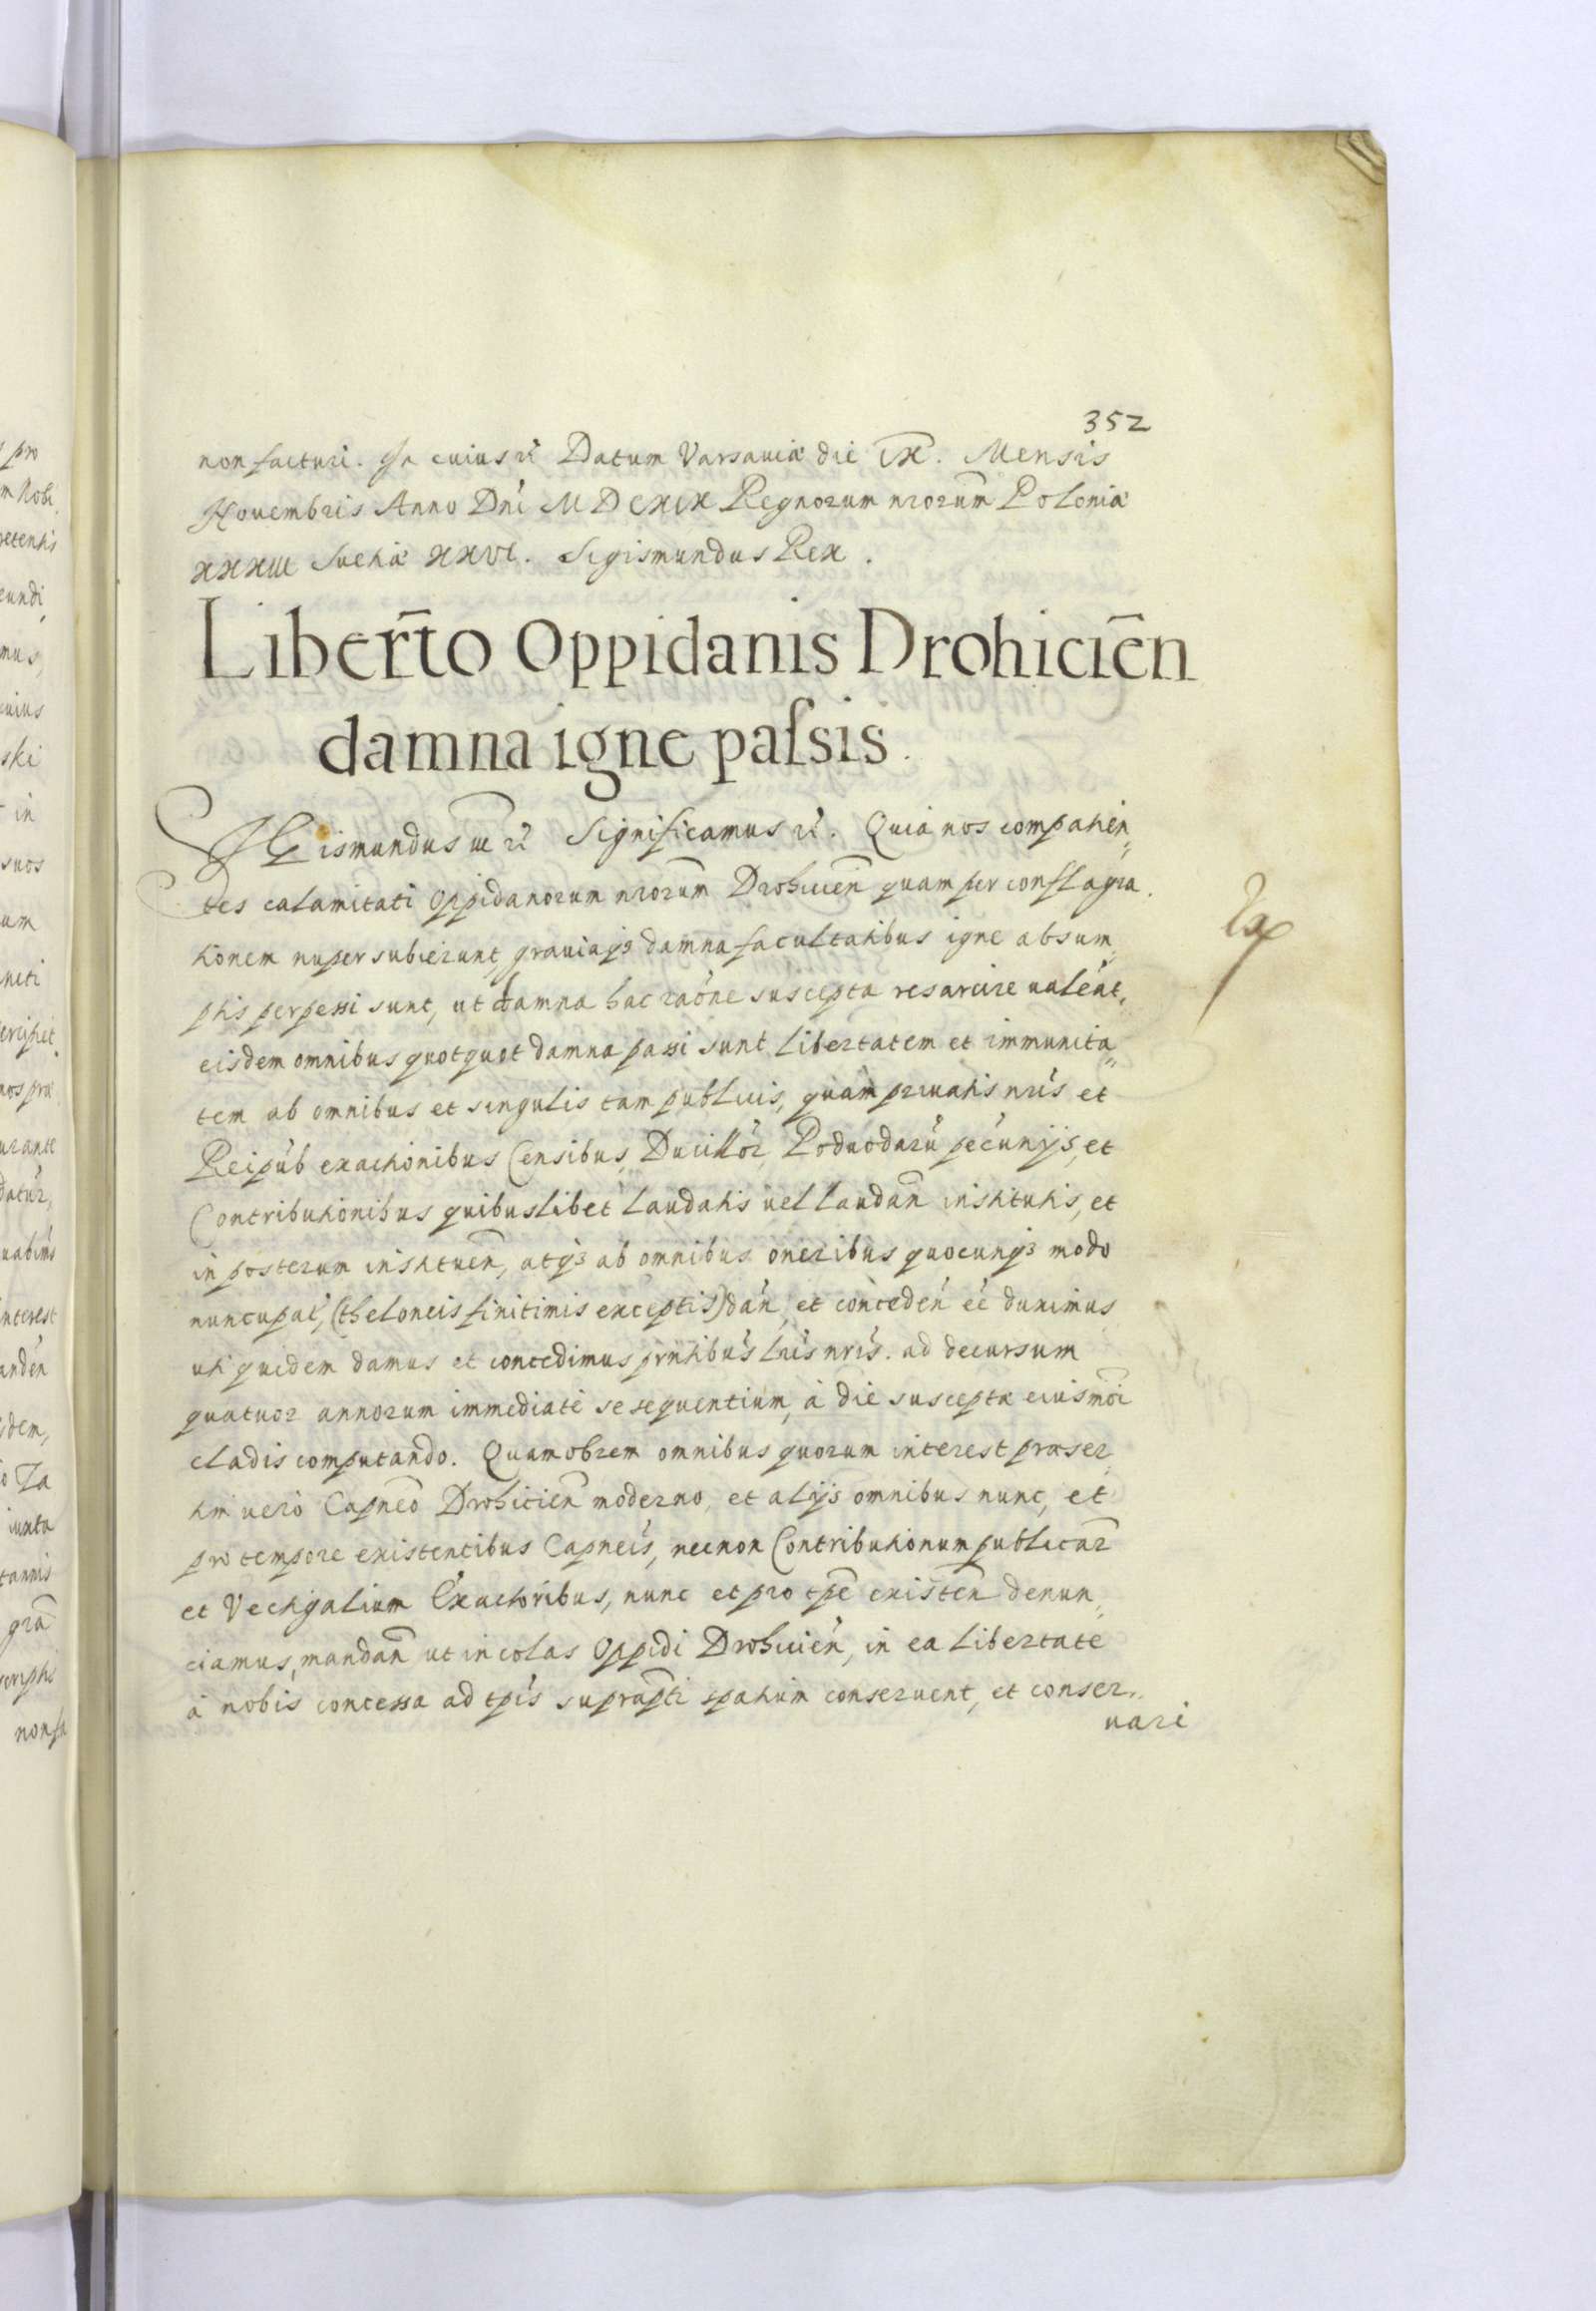 352
non facturi. In cuius rei Datum Varsauiæ die IX. Mensis
Nouembris Anno Dni MDCXIX Regnorum nrorum Poloniæ
XXXIII Suetiæ XXVI. Sigismundus Rex.
Libert̃to Oppidanis Drohiciẽn
damna igne paſsis.
Sigismundus III rc̃ Significamus rc̃. Quia nos compatien„
tes calamitati Oppidanorum nrorum Drohicien̄ quam per conflagra
tionem nuper subierunt, grauiaqз damna facultatibus igne absum„
ptis perpessi sunt, ut damna hac raõne suscepta resarcire ualeãt„
eisdem omnibus quotquot damna passi sunt libertatem et immunita„
tem ab omnibus et singulis tam publicis, quàm priuatis nris et
Reipub exactionibus Censibus, Ducillor, Podwodarũ pecunijs, et
Contributionibus quibuslibet laudatis uel laudan̄ institutis, et
in posterum instituen̄, atqз ab omnibus oneribus quocunqз modo
nuncupat, (theloneis finitimis exceptis) dan̄, et conceden̄ eẽ duximus
uti quidem damus et concedimus prntibus lris nris. ad decursum
quatuor annorum immediatè se sequentium, à die susceptæ eiusmõi
cladis computando. Quamobrem omnibus quorum interest præser
tim uerò Capneo Drohicien̄ moderno, et alijs omnibus nunc, et
pro tempore existentibus Capneis, necnon Contributionum publicar̃
et Vectigalium Exactoribus, nunc et pro tpe existen̄ denun„
ciamus, mandan̄ ut incolas Oppidi Drohicien̄, in ea libertate
à nobis concessa ad tpis suprapti spatium conseruent, et conser„
uari